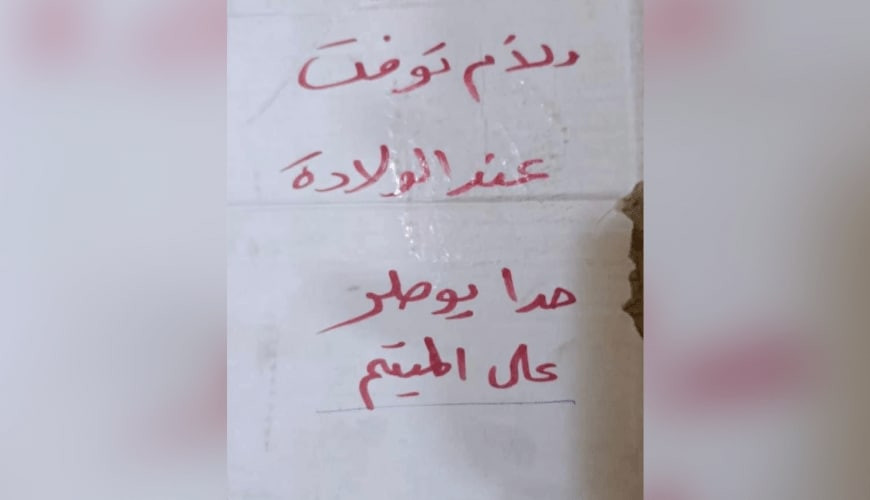 والأم توفت
عند الولادة
حدا يوصلو
على الميتم